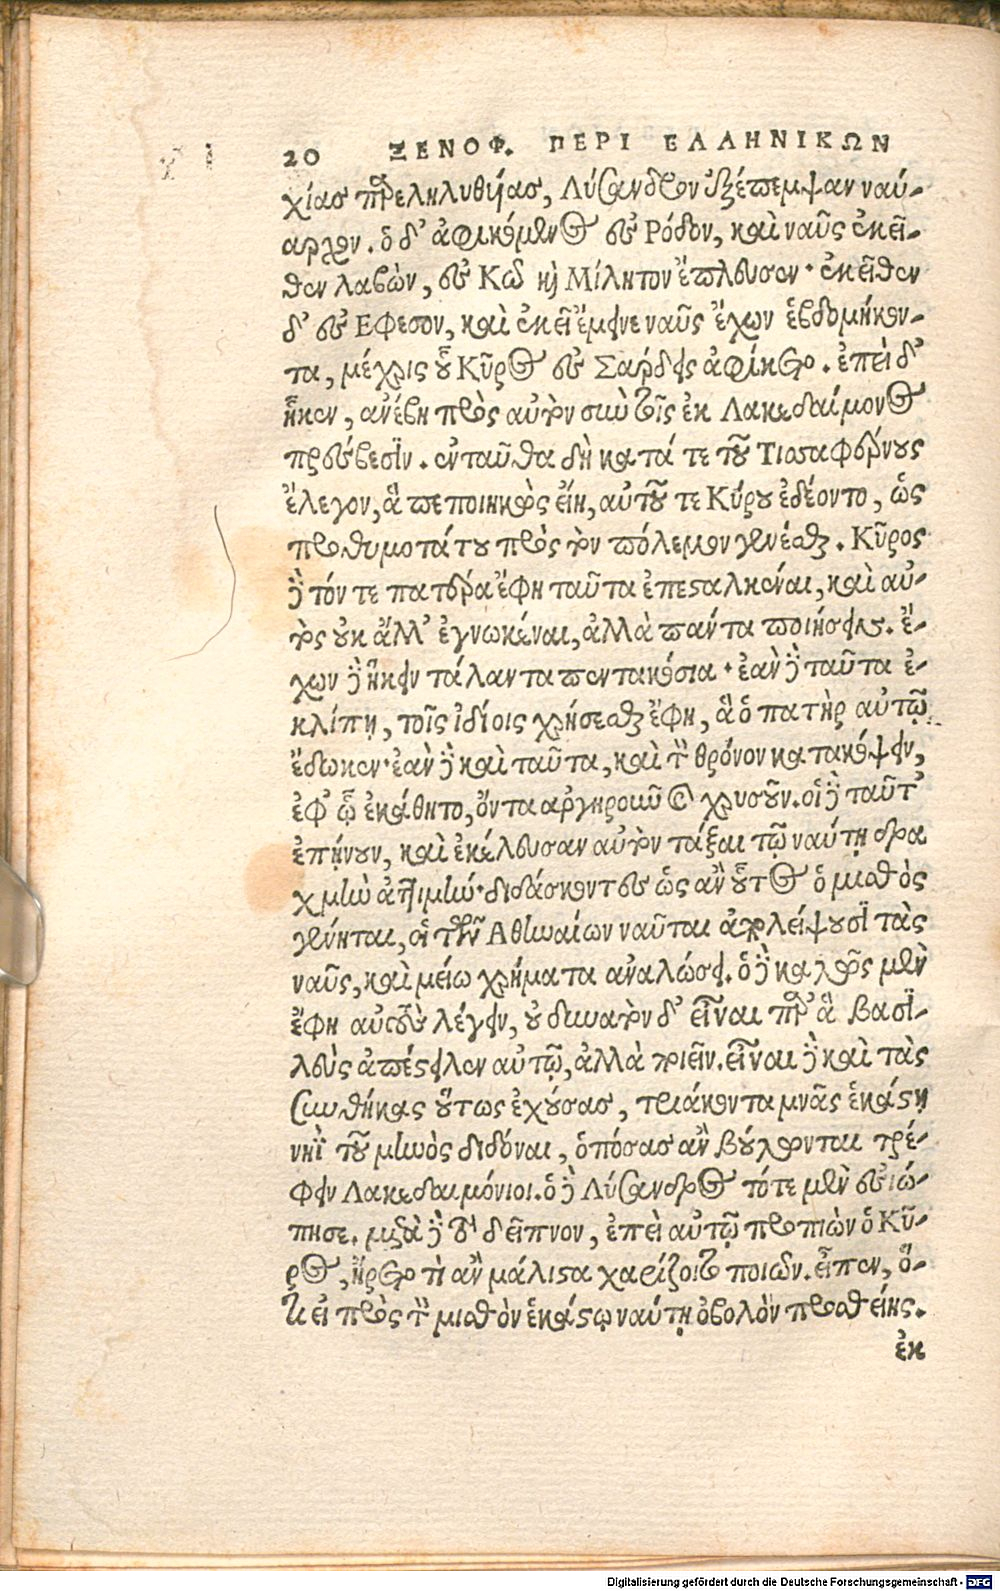 20 ΞΕΝΟΦ. ΠΕΡΙ ΕΛΛΗΝΙΚΩΝ
χίας παρεληλυθυίας, Λύσανδρον ἐξέπεμψαν ναύ-
αρχον. ὁ δ' ἀφικόμενος εἰς Ρόδον, καὶ ναῦς ἐκεῖ-
θεν λαβὼν, εἰς Κῶ καὶ Μίλητον ἔπλευσεν· ἐκεῖθεν
δ' εἰς Εφεσον, καὶ ἐκεῖ ἔμεινε ναῦς ἔχων ἑβδομήκον-
τα, μέχρις οὗ Κῦρος εἰς Σάρδεις ἀφίκετο. ἐπεὶ δ'
ἧκεν, ἀνέβη πρὸς αὐτὸν σὺν τοῖς ἐκ Λακεδαίμονος
πρέσβεσϊν. ἐνταῦθα δὴ κατά τε τοῦ Τισσαφέρνους
ἔλεγον, ἃ πεποιηκὼς εἴη, αὐτοῦ τε Κύρου ἐδέοντο, ὡς
προθυμοτάτου πρὸς τὸν πόλεμον γενέσθαι. Κῦρος
δὲ τόν τε πατέρα ἔφη ταῦτα ἐπεσταλκέναι, καὶ αὐ-
τὸς οὐκ ἄλλ' ἐγνωκέναι, ἀλλὰ πάντα ποιήσειν. ἔ-
χων δὲ ἥκειν τάλαντα πεντακόσια· ἐὰν δὲ ταῦτα ἐ-
κλίπῃ, τοῖς ἰδίοις χρήσεσθαι ἔφη, ἃ ὁ πατὴρ αὐτῷ
ἔδωκεν· ἐὰν δὲ καὶ ταῦτα, καὶ τὸν θρόνον κατακόψειν,
ἐφ' ᾧ ἐκάθητο, ὄντα ἀργυροῦν καὶ χρυσοῦν. οἱ δὲ ταῦτ'
ἐπῄνουν, καὶ ἐκέλευσαν αὐτὸν τάξαι τῷ ναύτῃ δρα
χμὴν ἀττικήν· διδάσκοντες ὡς ἂν οὗτος ὁ μισθὸς
γένηται, οἱ τῶν Αθηναίων ναῦται ἀπολείψουσϊ τὰς
ναῦς, καὶ μείω χρήματα ἀναλώσει. ὁ δὲ καλῶς μὲν
ἔφη αὐτοὺς λέγειν, οὐ δυνατὸν δ' εἶναι παρ' ἃ βασϊ-
λεὺς ἀπέστειλεν αὐτῷ, ἀλλὰ ποιεῖν. εἶναι δὲ καὶ τὰς
συνθήκας οὕτως ἐχούσας, τριάκοντα μνᾶς ἑκάστῃ
νηῒ τοῦ μηνὸς διδόναι, ὁπόσας ἂν βούλωνται τρέ-
φειν Λακεδαιμόνιοι. ὁ δὲ Λύσανδρος τότε μὲν ἐσιώ-
πησε. μετὰ δὲ τὸ δεῖπνον, ἐπεὶ αὐτῷ προπιὼν ὁ Κῦ-
ρος, ἤρετο τὶ ἂν μάλιστα χαρίζοιτο ποιῶν. εἶπεν, ὅ-
τι εἰ πρὸς τὸν μισθὸν ἑκάστῳ ναύτῃ ὀβολὸν προσθείης.
ἐκ
Digitalisierung gefördert durch die Deutsche Forschungsgemeinschaft - DFG